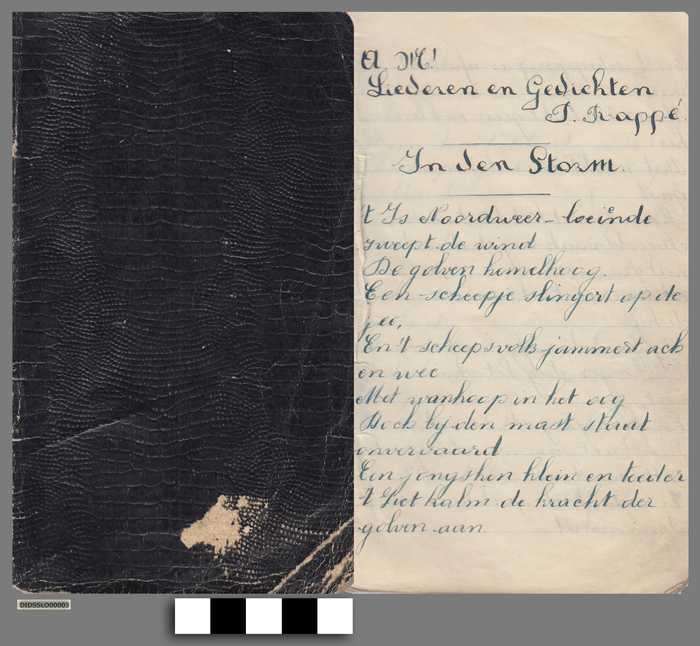 A. M!
Liederen en Gedichten
P. Rappé.
In den Storm.
't Is Noordweer - loeiende
zweept de wind
De golven hemelhoog.
Een scheepje slingert op de
zee,
En 't scheepsvolk jammert ach
en wee
Met wanhoop in het oog
Doch bij den mast staat
onvervaard
Een jongsken klein en teeder
't Ziet kalm de kracht der
golven aan
DIDSSLO00003